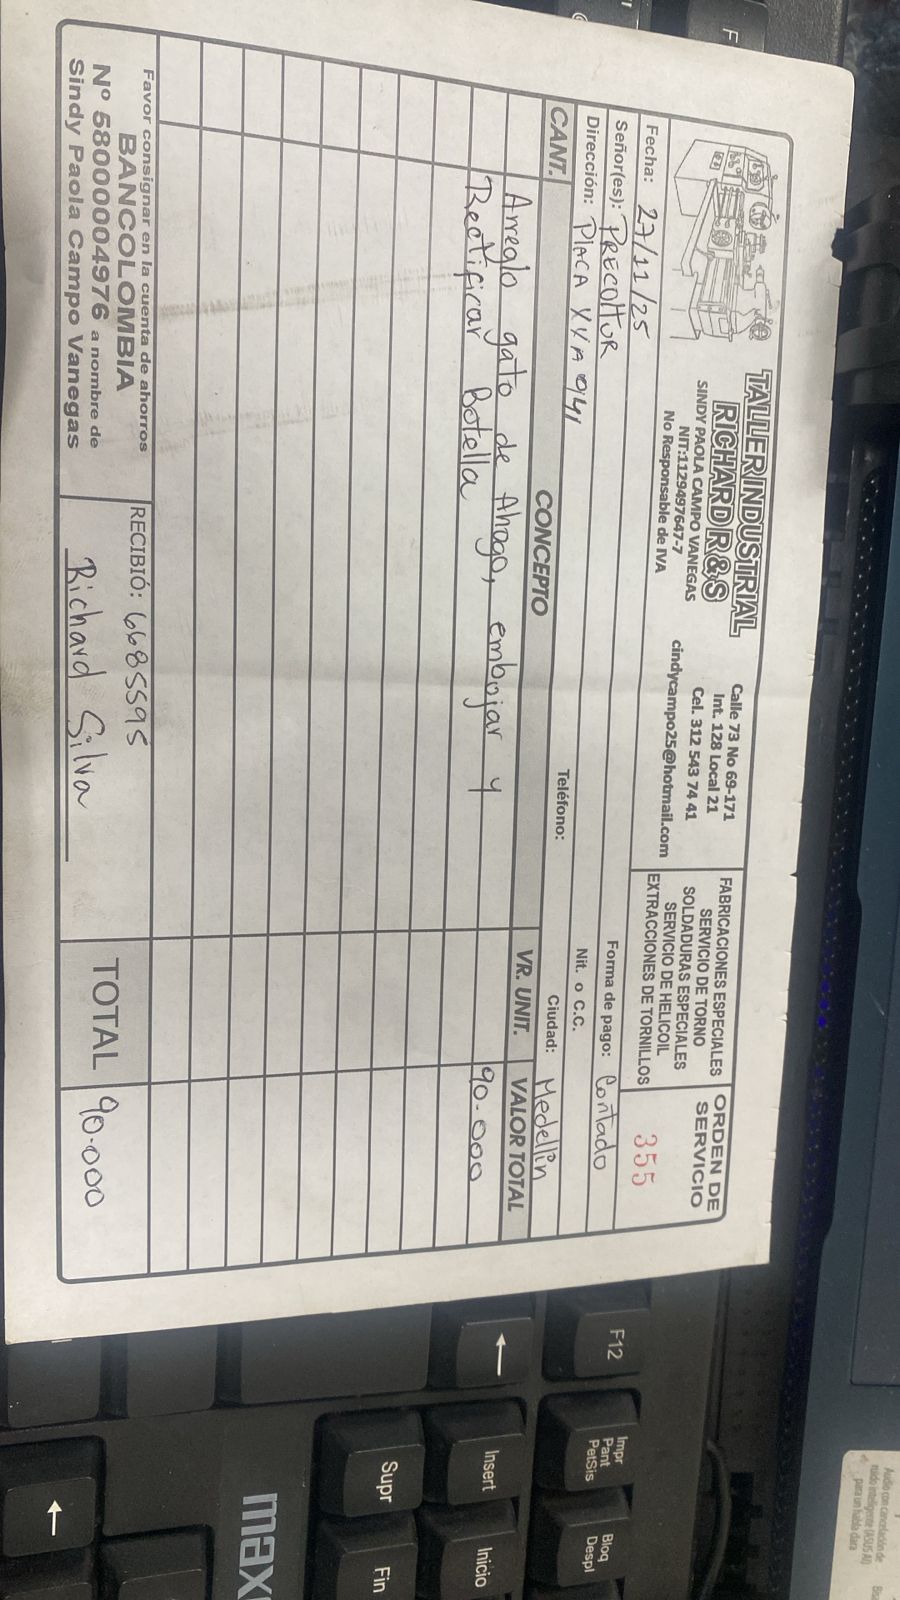 TALLER INDUSTRIAL
RICHARD R & S
SINDY PAOLA CAMPO VANEGAS
NIT:1129497647-7
No Responsable de IVA
Calle 73 No 69-171
Int. 128 Local 21
Cel. 312 543 74 41
cindycampo25@hotmail.com
FABRICACIONES ESPECIALES
SERVICIO DE TORNO
SOLDADURAS ESPECIALES
SERVICIO DE HELICOIL
EXTRACCIONES DE TORNILLOS
ORDEN DE
SERVICIO
355
Fecha: 27/11/25
Forma de pago: Contado
Señor(es): PRECOLTUR
Nit. o C.C.
Dirección: PLACA XXA 941
Teléfono:
Ciudad: Medellin
CANT. CONCEPTO VR. UNIT. VALOR TOTAL
Arreglo gato de Ahogo, embojar y 90.000
Rectificar Botella
Favor consignar en la cuenta de ahorros
BANCOLOMBIA
Nº 58000004976 a nombre de
Sindy Paola Campo Vanegas
RECIBIÓ: 6685595
Richard Silva
TOTAL 90.000
F12
Impr
Pant
PetSis
Bloq
Despl
Insert
Inicio
Supr
Fin
max
Audio con cancelación de
ruido inteligente (ASUS AI)
para un habla clara